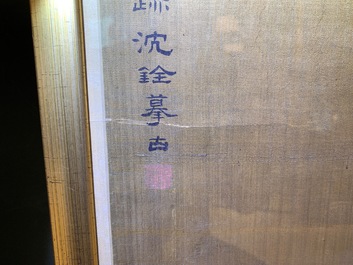 沈銓摹古